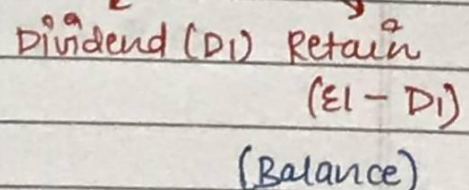 Dividend (D1) Retain
(E1 - D1)
(Balance)